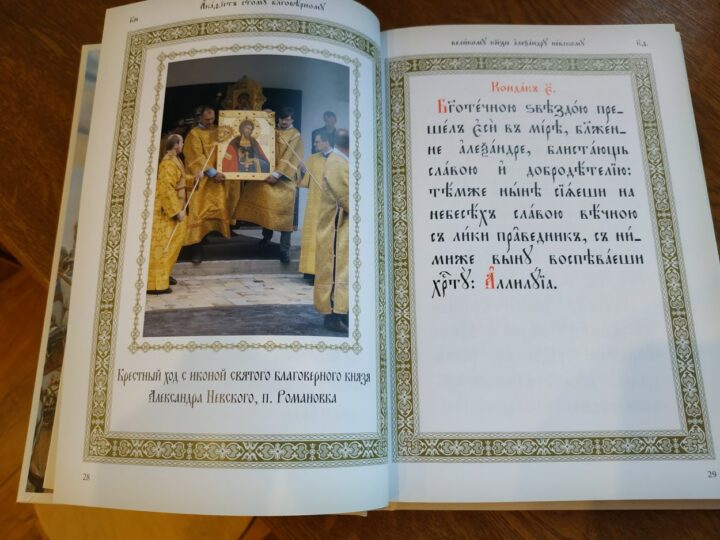 Акаѳⷭ҇тъ ст҃о́мꙋ благовѣ́рномꙋ
Кн
Крестный ход с иконой святого благоверного князя
Александра Невского, п. Романовка
28
вели́комꙋ кнѧ́зю а҆леѯа́ндрꙋ не́вскомꙋ
Конда́къ є҃.
Бг҃оте́чною ѕвѣздо́ю пре-
ше́лъ є҆сѝ въ мі́рѣ, бл҃же́н-
не а҆леѯа́ндре, блиста́ющь
сла́вою и҆ добродѣ́телїю:
тѣ́мже ны́нѣ сїѧ́еши на
небесѣ́хъ сла́вою вѣ́чною
съ ли́ки пра́ведникъ, съ ни́-
миже вы́нꙋ воспѣва́еши
хрⷭ҇тꙋ̀: А҆ллилꙋ́їа.
29